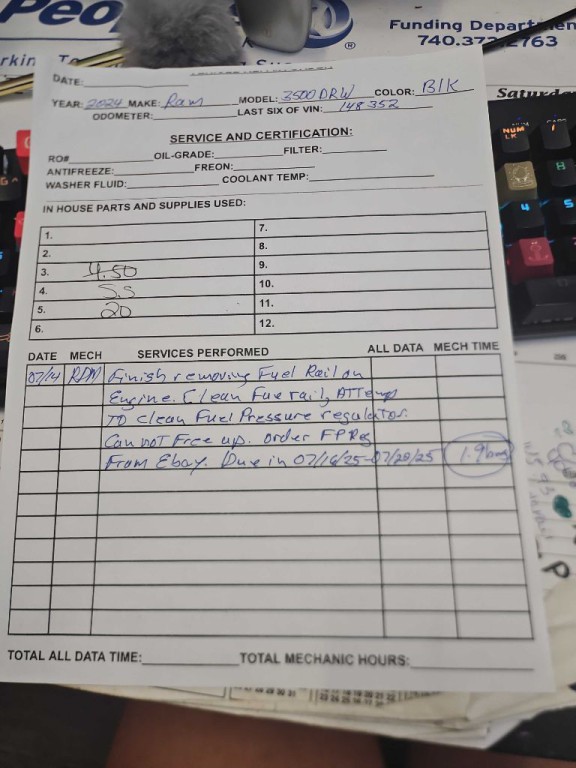 Peo
Funding Departmen
740.37 2763
DATE:
YEAR: 2024 MAKE: Ram MODEL: 3500 DRW COLOR: Blk
ODOMETER: LAST SIX OF VIN: 148352
Saturda
SERVICE AND CERTIFICATION:
RO# OIL-GRADE: FILTER:
ANTIFREEZE: FREON:
WASHER FLUID: COOLANT TEMP:
IN HOUSE PARTS AND SUPPLIES USED:
1. 7.
2. 8.
3. 4.50 9.
4. S.S 10.
5. 20 11.
6. 12.
DATE MECH SERVICES PERFORMED ALL DATA MECH TIME
07/14 RDM Finish removing Fuel Rail on
Engine. Clean Fue rail, ATTemp
TO clean Fuel Pressure regulator.
Can not Free up. order FPReg
From Ebay. Due in 07/16/25-07/20/25 1.9
TOTAL ALL DATA TIME: TOTAL MECHANIC HOURS:
NUM
LK
4
5
P